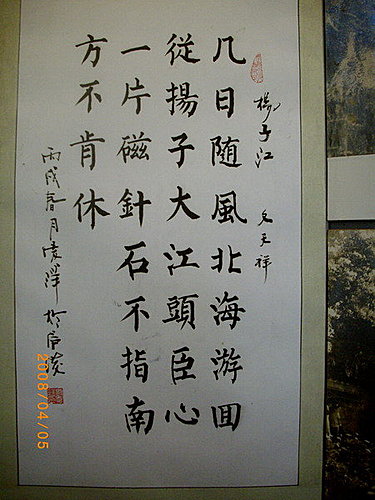 楊子江 文天祥
几日随風北海游囬
從揚子大江頭臣心
一片磁針石不指南
方不肯休
丙戌春月
2008/04/05